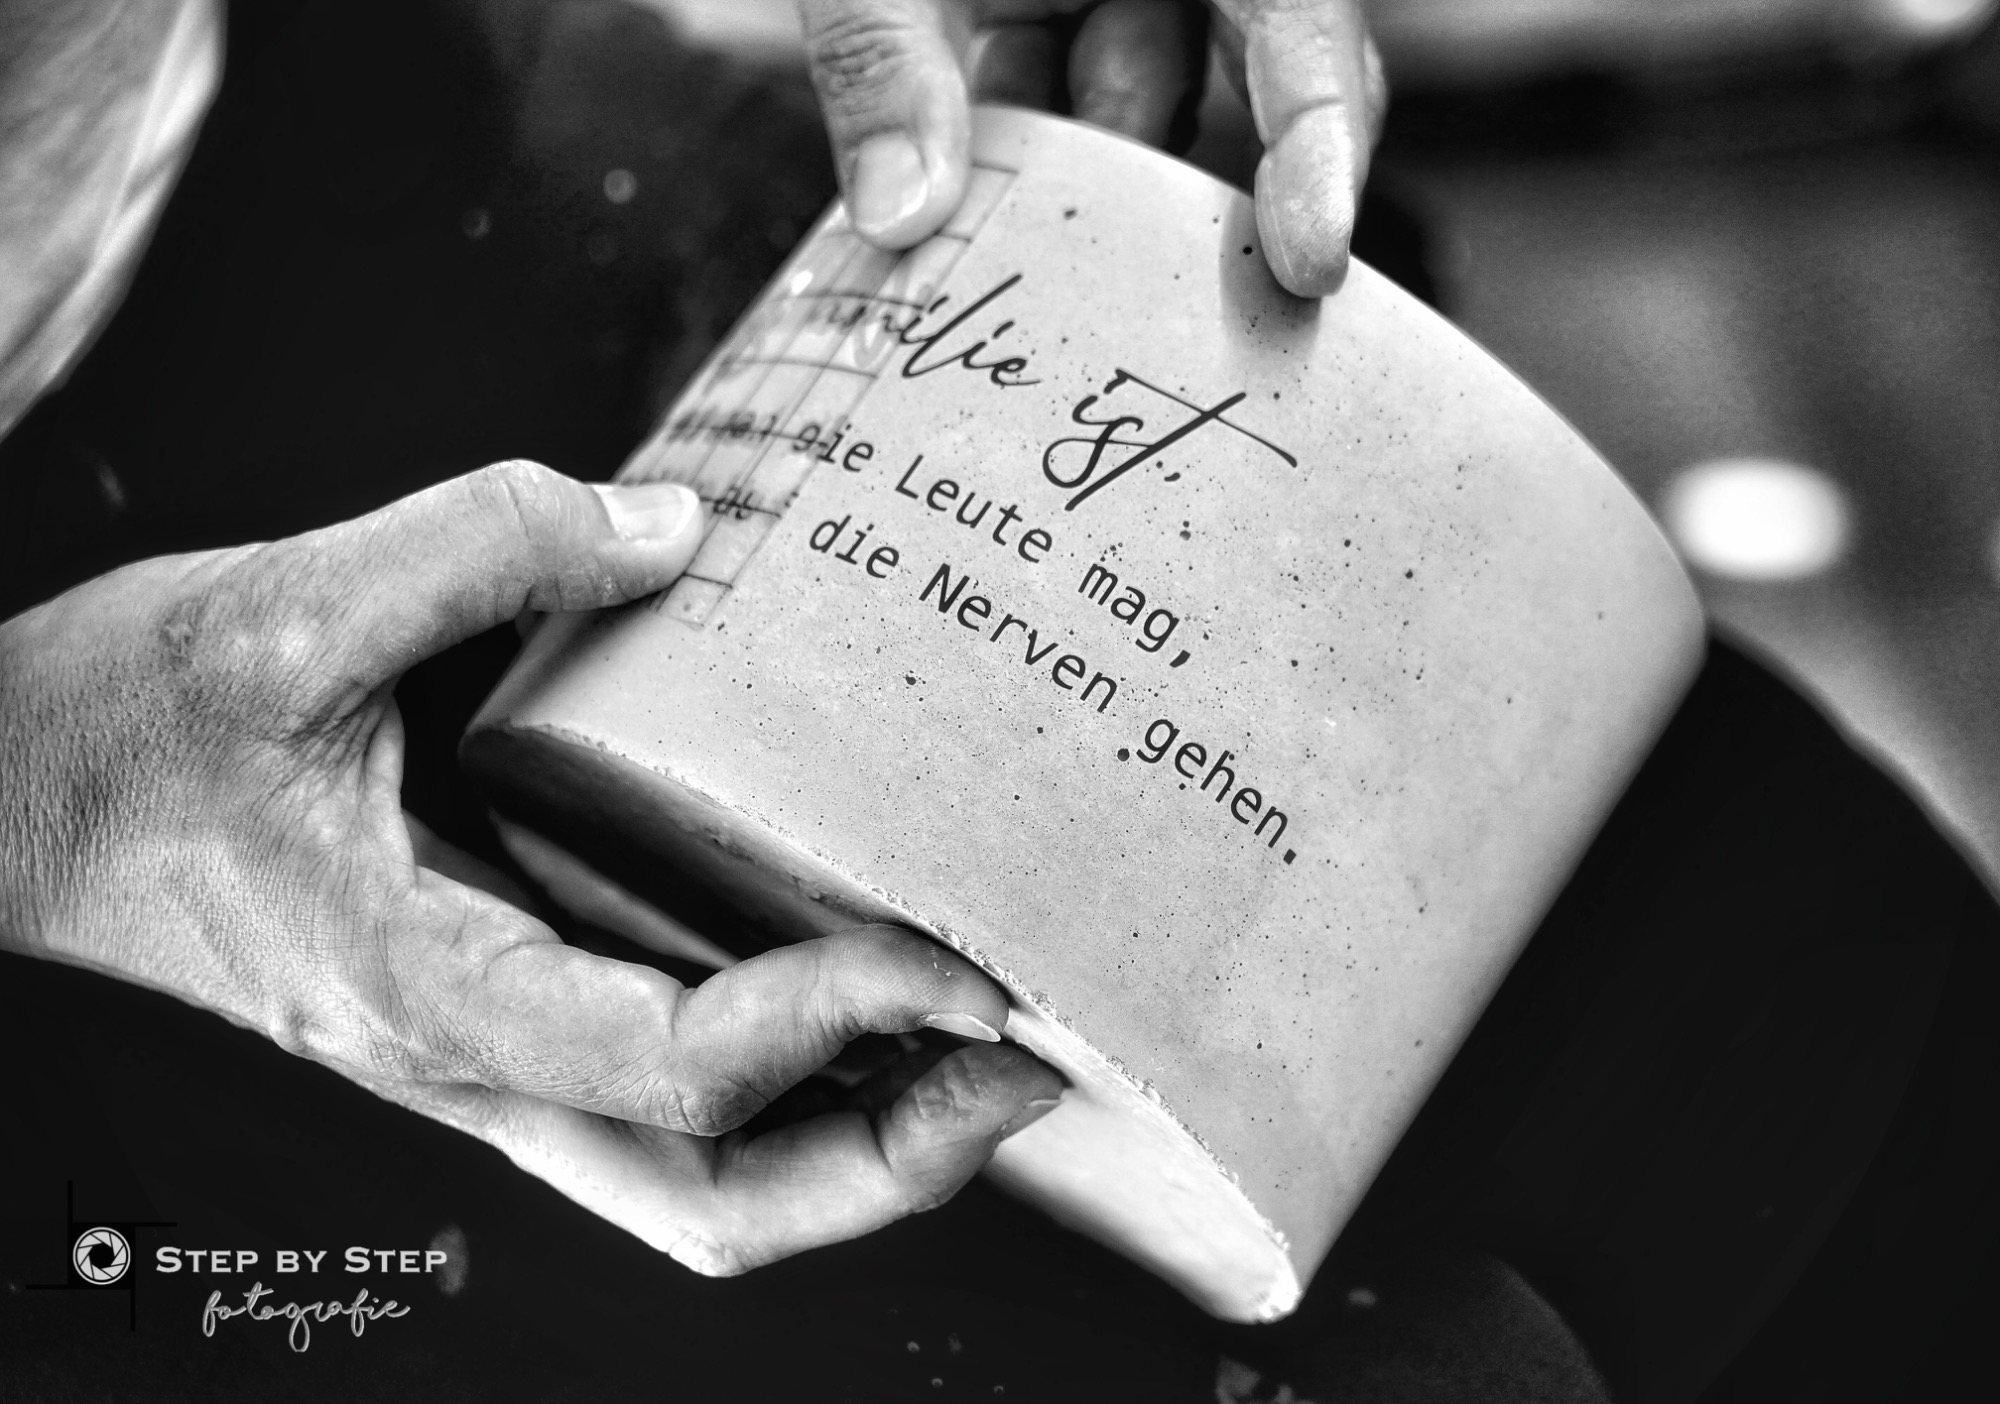 Familie ist,
wenn man die Leute mag,
die Nerven gehen.
STEP BY STEP
fotografie